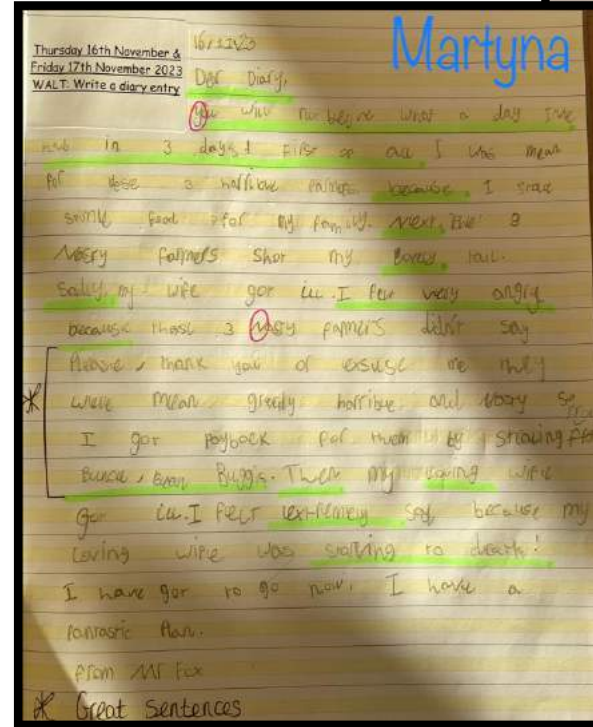 Martyna
Thursday 16th November &
Friday 17th November 2023
WALT: Write a diary entry
16/11/23
Diary,
You will no what a day I've
in 3 days! First so all I was mean
for 3 horrible farmers because I
some food for my family. Next, 3
farmers shot my lovely tail.
Sadly, my wife got ill. I felt very angry
because those 3 farmers didn't say
Please, thank you or exsuse me they
were mean greedy horrible and so
I got payback for them by
Bunce, Bean Then my loving wife
got ill. I felt extremely sad, because my
loving wife was to death!
I have got to go now. I have a
fantastic plan.
From Mr Fox
* Great Sentences